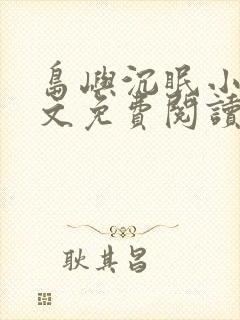 島嶼沉眠小
文免費閱讀
耿其昌